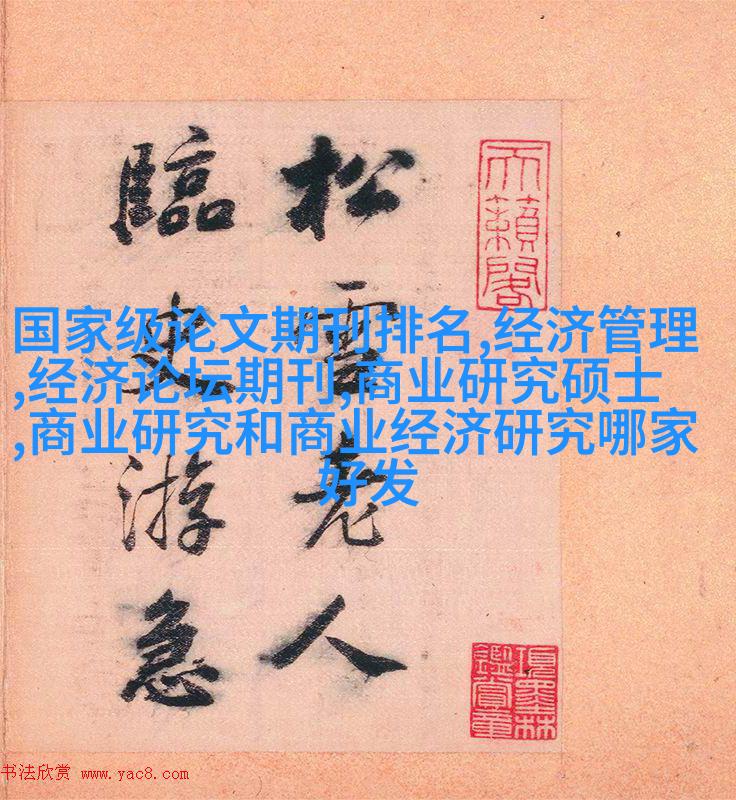 国家级论文期刊排名,经济管理
,经济论坛期刊,商业研究硕士
,商业研究和商业经济研究哪家
好发
天籟閣
松雪老人
臨史游急
項墨林鑑賞章
书法欣赏 www.yac8.com